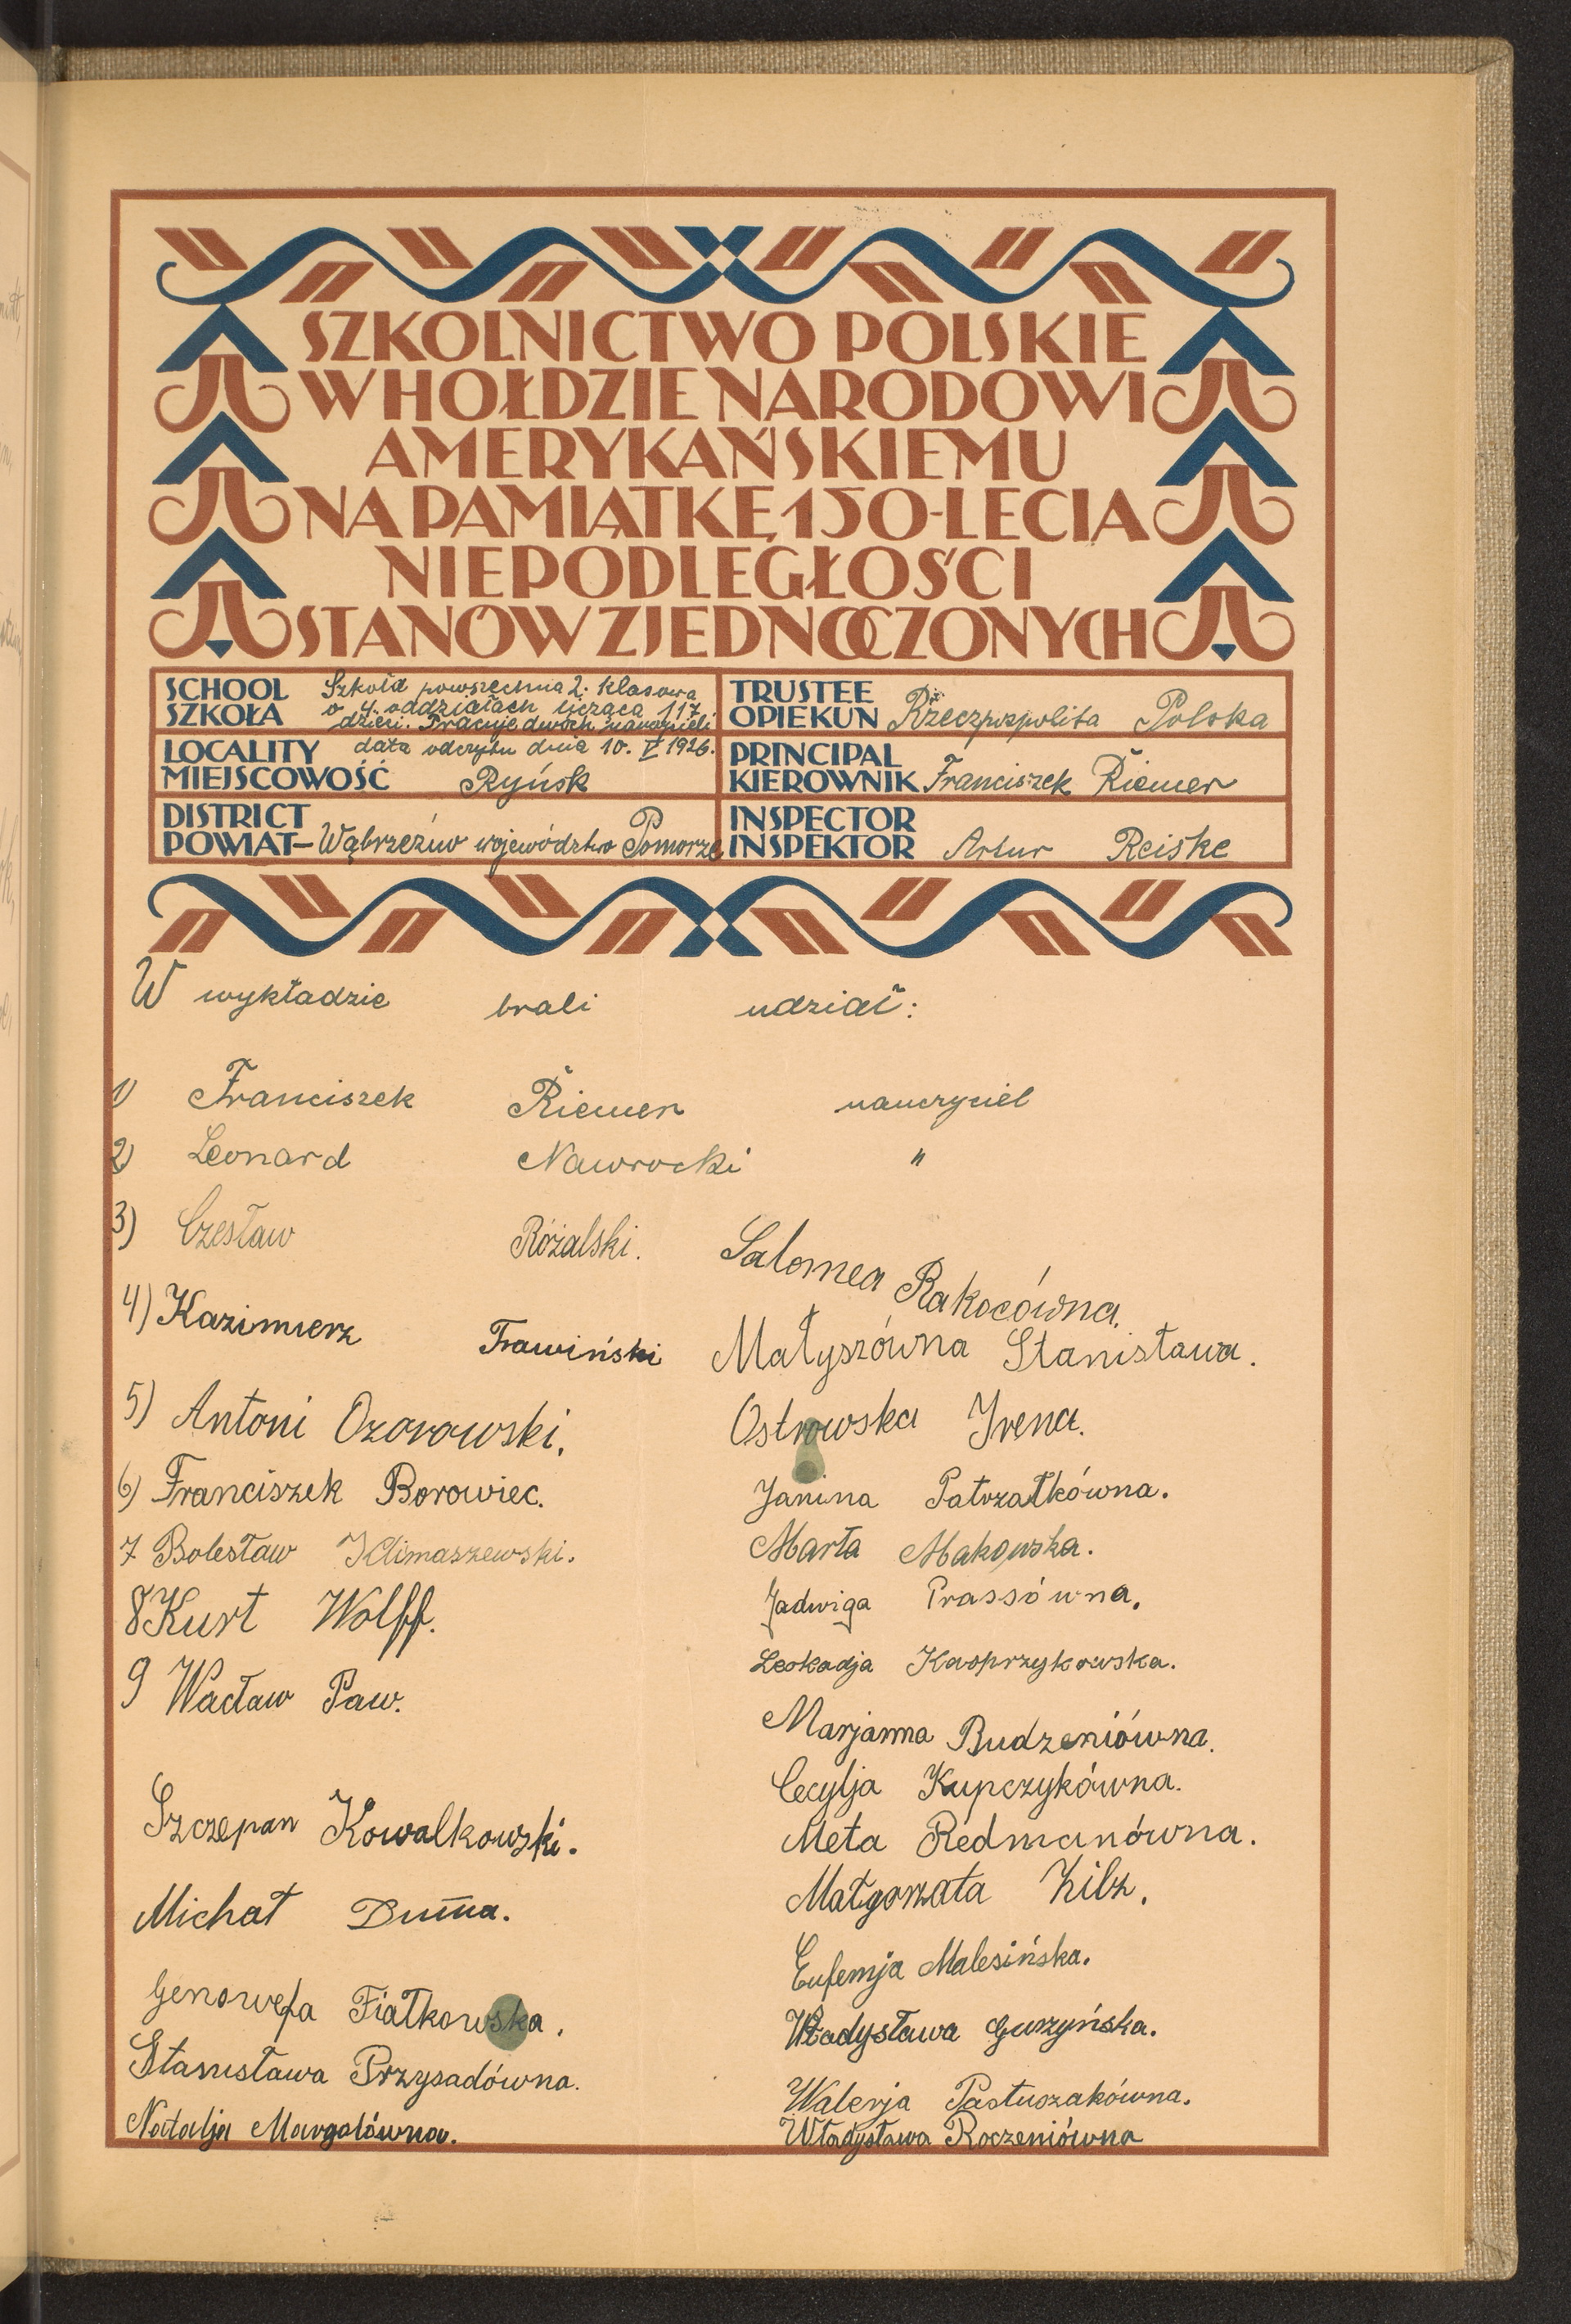 SZKOLNICTWO POLSKIE
W HOŁDZIE NARODOWI
AMERYKAŃSKIEMU
NA PAMIĄTKĘ 150-LECIA
NIEPODLEGŁOŚCI
STANÓW ZJEDNOCZONYCH
SCHOOL
SZKOŁA
Szkoła powszechna 2. klasowa
o 4. oddziałach licząca 117.
dzieci. Pracuje dwóch nauczycieli
LOCALITY
MIEJSCOWOŚĆ
data odczytu dnia 10. V 1926.
Ryńsk
DISTRICT
POWIAT – Wąbrzeźno województwo Pomorze
TRUSTEE
OPIEKUN Rzeczpospolita Polska
PRINCIPAL
KIEROWNIK Franciszek Riemer
INSPECTOR
INSPEKTOR Artur Reiske
W wykładzie brali udział:
1) Franciszek Riemer nauczyciel
2) Leonard Nawrocki "
3) Czesław Różalski.
4) Kazimierz Trawiński
5) Antoni Ozorowski.
6) Franciszek Borowiec.
7 Bolesław Klimaszewski.
8 Kurt Wolff.
9 Wacław Paw.
Szczepan Kowalkowski.
Michał Duma.
Genowefa Fiałkowska.
Stanisława Przysadówna.
Natalja Margolówna.
Salomea Rakocówna.
Małyszówna Stanisława.
Ostrowska Irena.
Janina Patrzałkówna.
Marta Makowska.
Jadwiga Prassówna.
Leokadja Kasprzykowska.
Marjanna Budzeniówna.
Cecylja Kupczykówna.
Meta Redmanówna.
Małgorzata Zilz.
Eufemja Malesińska.
Władysława Guzyńska.
Walerja Pastuszakówna.
Władysława Roczeniówna